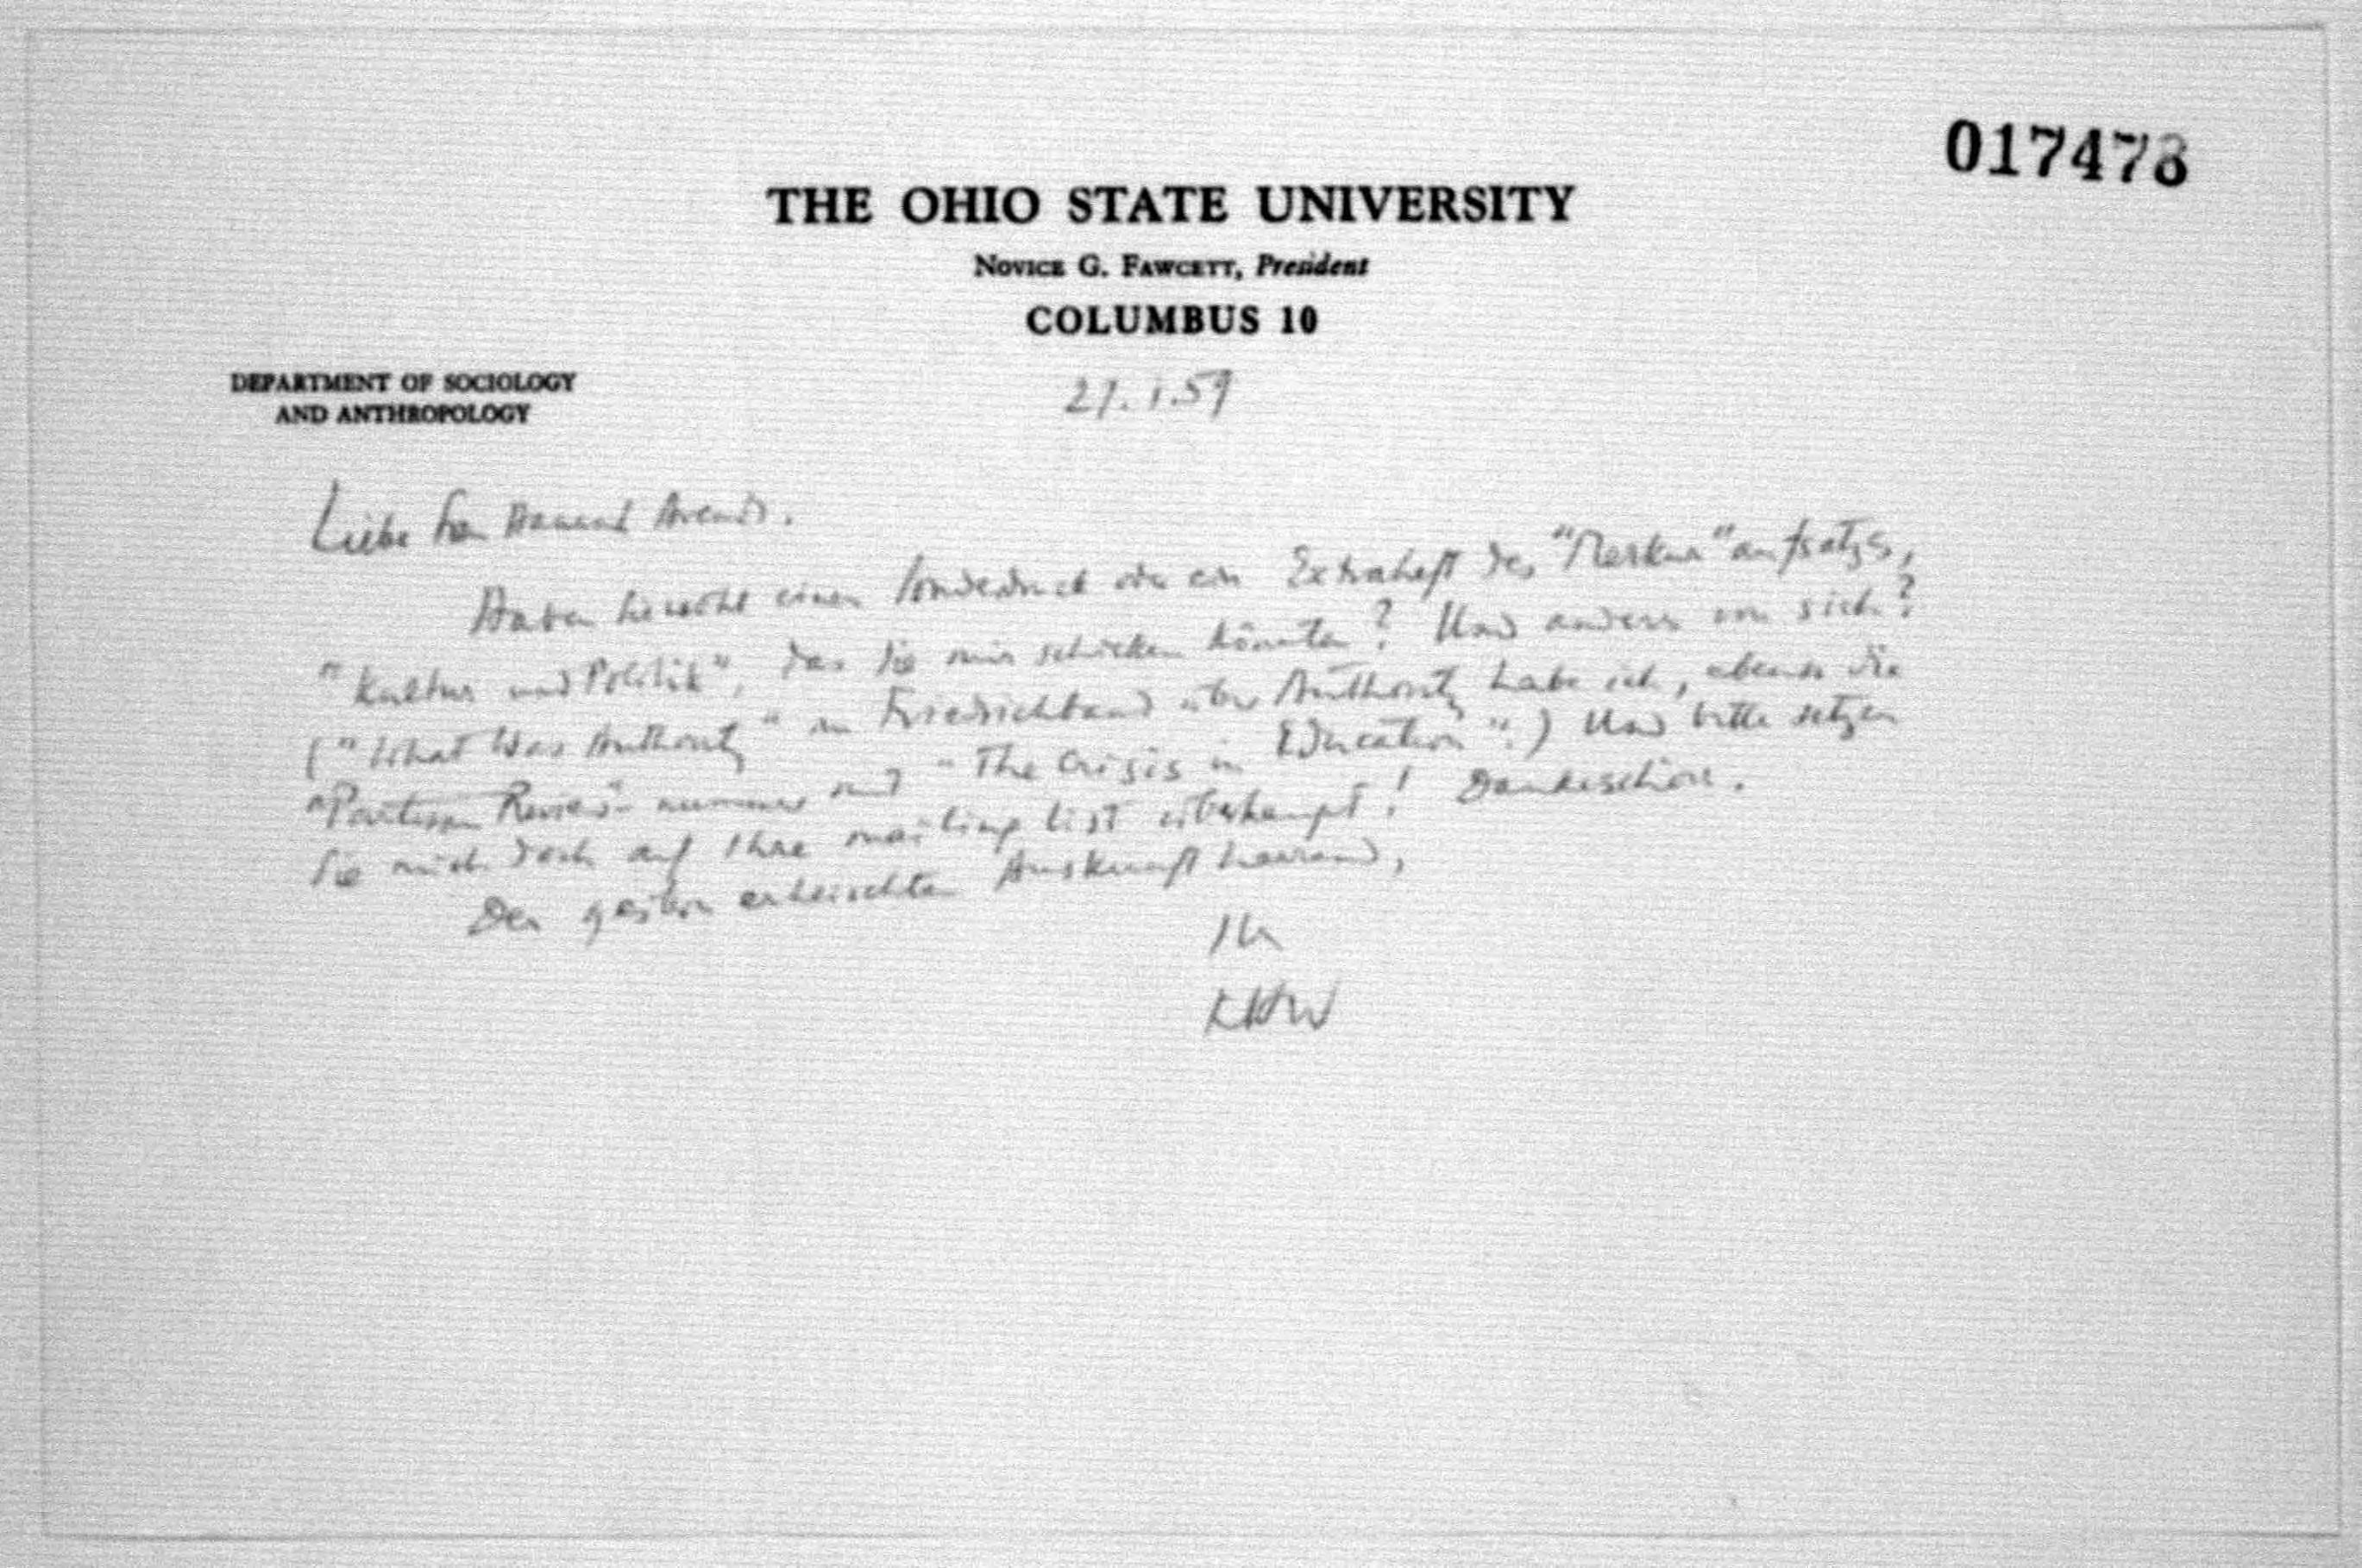 017478
THE OHIO STATE UNIVERSITY
NOVICE G. FAWCETT, President
COLUMBUS 10
DEPARTMENT OF SOCIOLOGY
AND ANTHROPOLOGY
27.1.59
Liebe Frau Hannah Arendt.
Haben Sie wohl einen Sonderdruck oder ein Extraheft des "Merkur" aufsatzes,
"Kultur und Politik", das Sie mir schicken könnten? Und anderes von sich?
("What Was Authority" im Friedrichband über Authority habe ich, ebenso die
"Partisan Review"- nummer mit "The Crisis in Education".) Und bitte setzen
Sie mich doch auf Ihre mailing list überhaupt! Dankeschön.
Der gestern erheischten Auskunft harrend,
Ihr
KHW